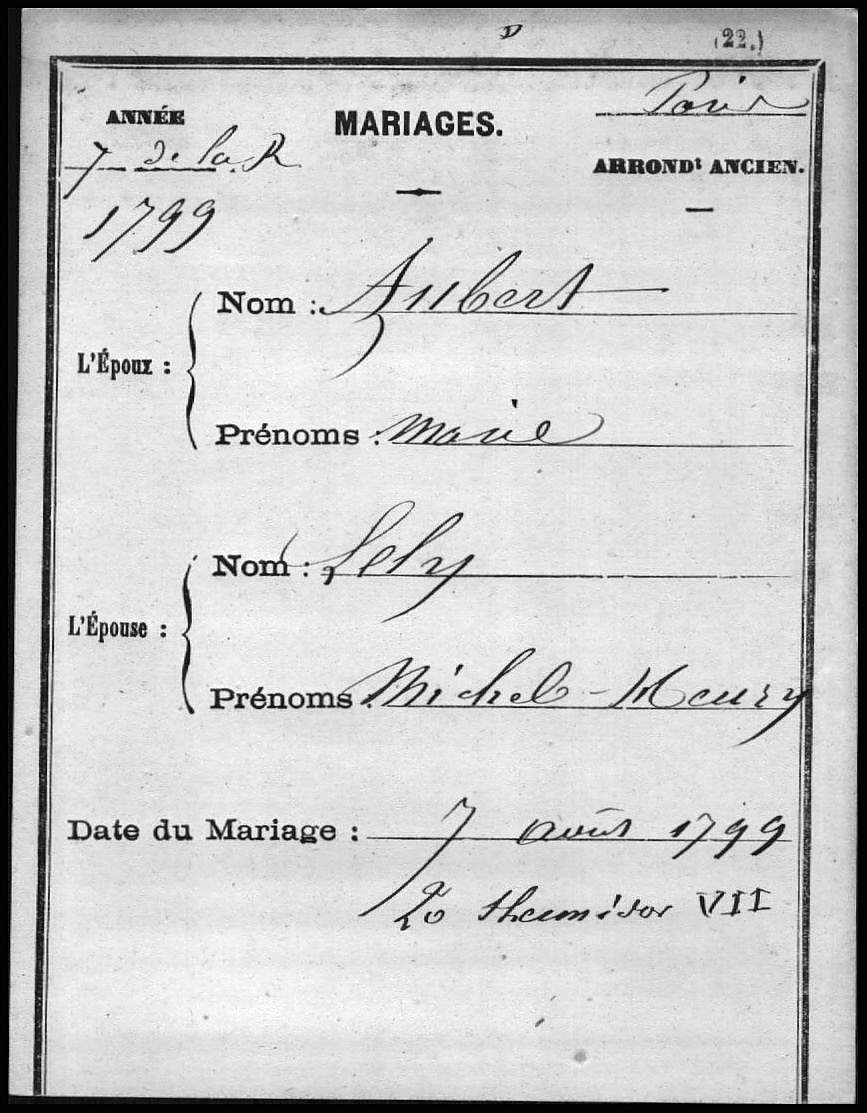 D (22.)
ANNÉE
7 de la R
1799
MARIAGES.
Paris
ARRONDt ANCIEN.
L'Époux :
Nom : Aubert
Prénoms : Marie
L'Épouse :
Nom : Lely
Prénoms : Michel-Henry
Date du Mariage : 7 août 1799
20 thermidor VII